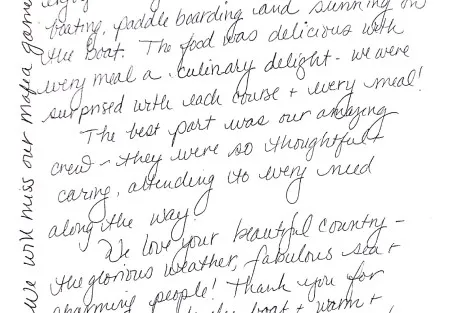 boating, paddle boarding and sunning on
the boat. The food was delicious with
every meal a culinary delight - we were
surprised with each course + every meal!
The best part was our amazing
crew - they were so thoughtful +
caring, attending to every need
along the way
We love your beautiful country -
the glorious weather, fabulous sea +
charming people! Thank you for
boat + warm +
We will miss our mafia game